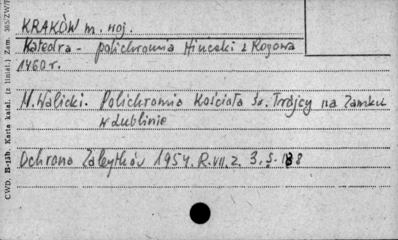 KRAKÓW m. woj.
Katedra - polichromia Hinczki z Rogowa
1460 r.
M. Walicki. Polichromia Kościoła św. Trójcy na Zamku
w Lublinie
Ochrona Zabytków 1954. R. VII. z. 3. s. 188
CWD. B-13b. Karta katal. (z liniat.) Zam. 305/ZW/